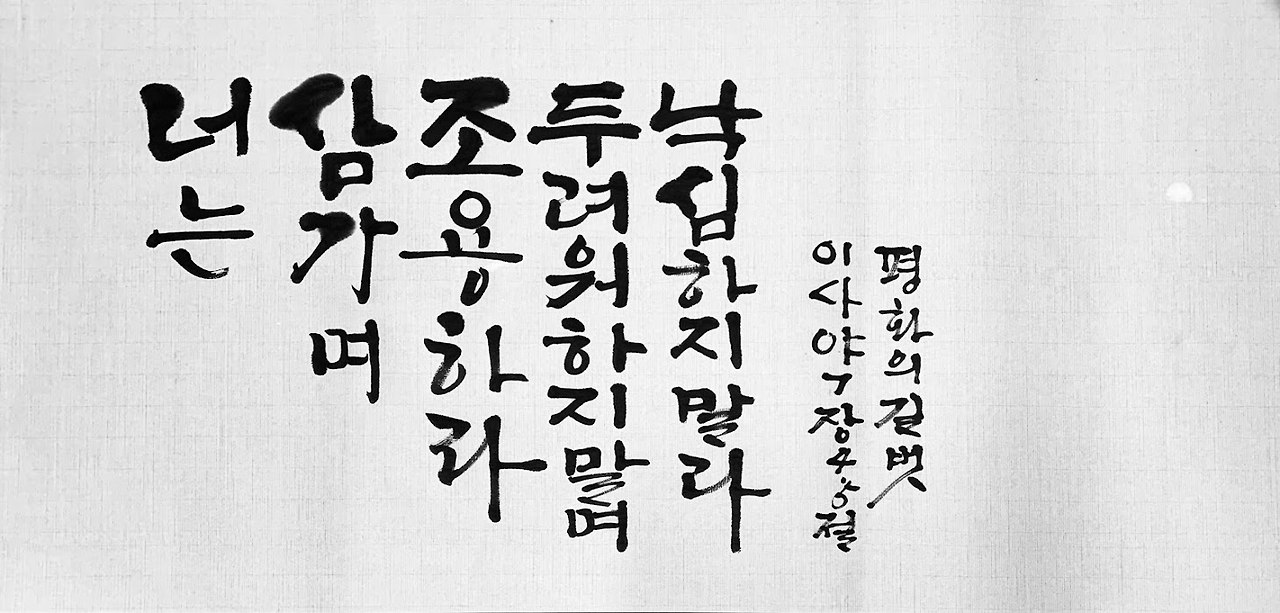 너는
삼가며
조용하라
두려워하지말며
낙심하지말라
이사야7장4상절
평화의길벗